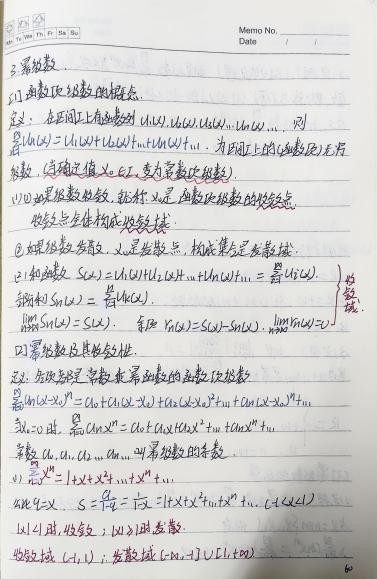 Memo No.
Mo Tu We Th Fr Sa Su
Date / /
3. 幂级数
[1] 函数项级数的概念.
定义: 在区间I上有函数列 u₁(x), u₂(x), u₃(x)...uₙ(x)..., 则
∑uₙ(x)=u₁(x)+u₂(x)+...+uₙ(x)+... 为区间I上的(函数项)无穷
级数, (当确定值 x₀∈I, 变为常数项级数).
(1) ①如果级数收敛, 就称 x₀是 函数项级数的收敛点.
收敛点全体构成收敛域.
②如果级数发散, x₀是发散点, 构成集合是发散域.
(2) 和函数 S(x)=u₁(x)+u₂(x)+...+uₙ(x)+... = ∑uᵢ(x).
部分和Sₙ(x) = ∑uₖ(x).
lim Sₙ(x)=S(x). 余项 rₙ(x)=S(x)-Sₙ(x). lim rₙ(x)=0
收敛域.
[2] 幂级数及其收敛性.
定义: 各项都是常数乘幂函数的函数项级数
∑aₙ(x-x₀)ⁿ = a₀+a₁(x-x₀)+a₂(x-x₀)²+...+aₙ(x-x₀)ⁿ+...
当x₀=0时, ∑aₙxⁿ = a₀+a₁x+a₂x²+...+aₙxⁿ+...
常数 a₀, a₁, a₂...aₙ... 叫幂级数的系数.
(1) ∑xⁿ=1+x+x²+...+xⁿ+...
公比q=x S=a₁/(1-q)=1/(1-x)=1+x+x²+...+xⁿ+... (-1<x<1)
|x|<1时, 收敛; |x|≥1时, 发散.
收敛域 (-1,1); 发散域(-∞,-1]∪[1,+∞)
60